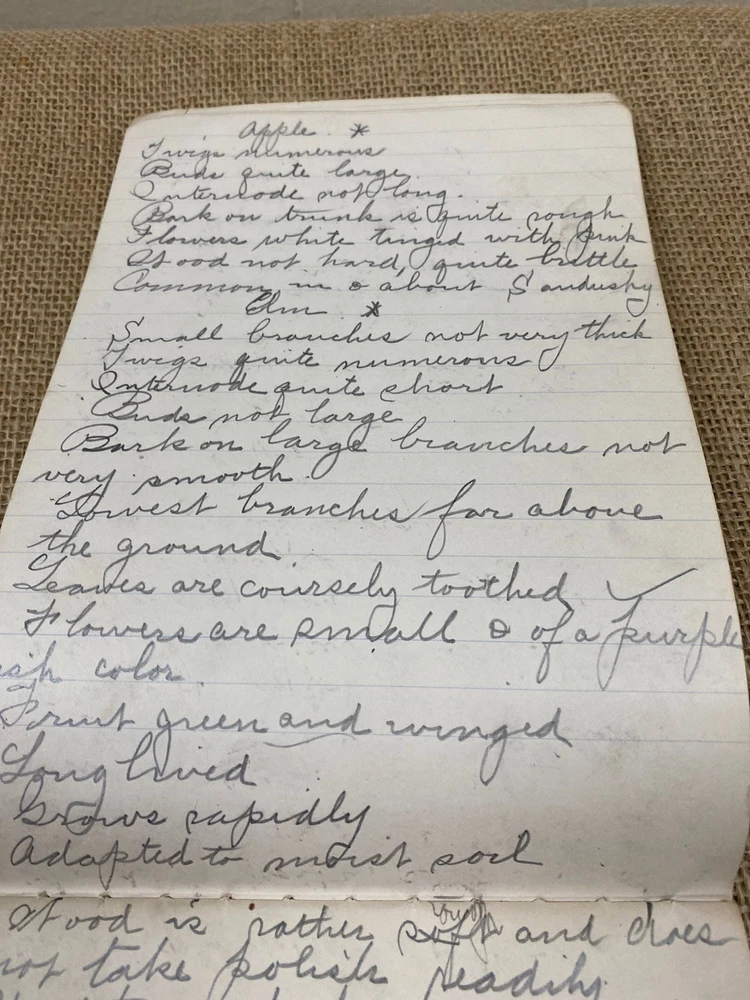 Apple. *
Twigs numerous
Buds quite large.
Internode not long.
Bark on trunk is quite rough
Flowers white tinged with pink
Wood not hard, quite brittle
Common in & about Sandusky
Elm *
Small branches not very thick
Twigs quite numerous
Internode quite short
Buds not large
Bark on large branches not
very smooth.
Lowest branches far above
the ground
Leaves are coursely toothed
Flowers are small & of a purple
ish color.
Fruit green and winged
Long lived
Grows rapidly
Adapted to moist soil
Wood is rather tough and does
not take polish readily